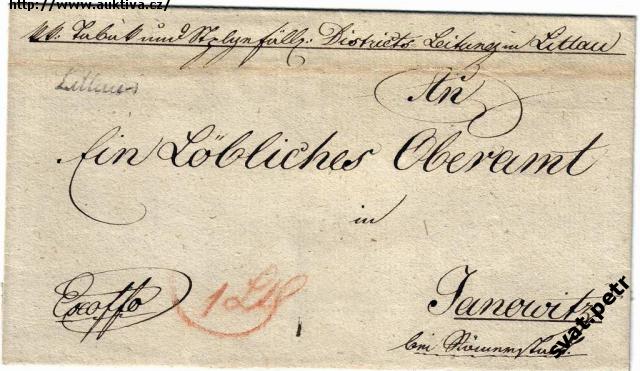 http://www.auktiva.cz/
kk: Tabak und Stplgnfälls: Districts Leitung in Littau
Littau
An
Ein Löbliches Oberamt
in
Exoffo
1 Lth
Janowitz
bei Römerstadt
svat.petr